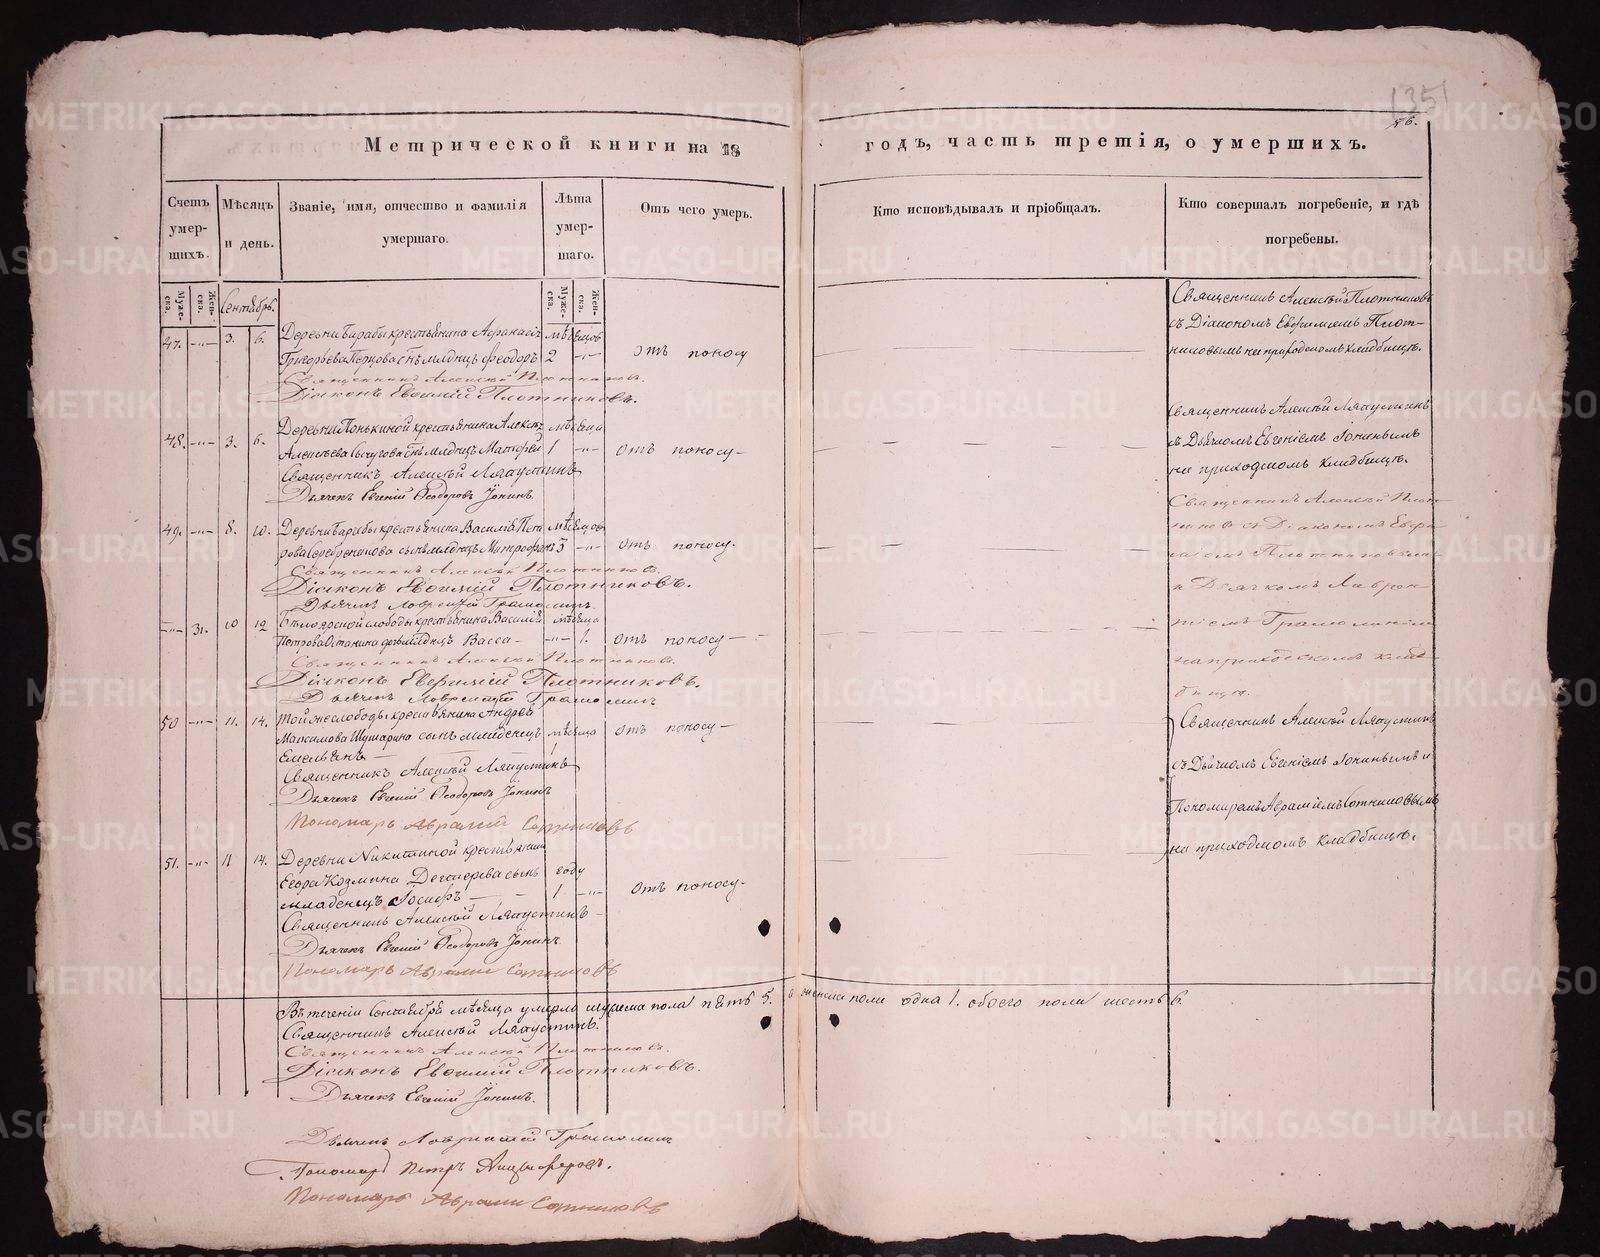 135
86.
Метрической книги на 18
годъ, часть третія, о умершихъ.
Счетъ умер-шихъ.
Мѣсяцъ и день.
Званіе, имя, отчество и фамилія умершаго.
Лѣта умер-шаго.
Отъ чего умеръ.
Кто исповѣдывалъ и пріобщалъ.
Кто совершалъ погребеніе, и гдѣ погребены.
Муже-ска.
Жен-ска.
Сентябрь.
Муже-ска.
Жен-ска.
47. -"- 3. 6. Деревни Барабы крестьянина Афанасія мѣсяцов
Григорьева Перцова сынъ младнцъ Феодоръ 2 -"- отъ поносу
Священникъ Алексѣй Плотниковъ.
Діаконъ Евфимій Плотниковъ.
Священникъ Алексѣй Плотниковъ
съ Діакономъ Евфиміемъ Плот-
никовымъ на приходскомъ кладбищѣ.
48. -"- 3. 6. Деревни Понькиной крестьянина Алексѣя мѣсяца
Алексѣева Сычугова сынъ младнцъ Матфей 1 -"- отъ поносу
Священникъ Алексѣй Ляпустинъ
Дьячекъ Евгеній Ѳеодоровъ Іонинъ
Священникъ Алексѣй Ляпустинъ
съ Дьячкомъ Евгеніемъ Іонинымъ
на приходскомъ кладбищѣ.
49. -"- 8. 10. Деревни Барабы крестьянина Василія Пет мѣсяцов
рова Серебреникова сынъ младнцъ Митрофанъ 3 -"- отъ поносу.
Священникъ Алексѣй Плотниковъ.
Діаконъ Евфимій Плотниковъ.
Дьячекъ Лаврентій Грамолинъ
Священникъ Алексѣй Плот
никовъ съ Діакономъ Евфи
міемъ Плотниковымъ
и Дьячкомъ Лаврен
тіемъ Грамолинымъ
на приходскомъ клад-
бищѣ.
-"- 31. 10 12 Бѣлоярской слободы крестьянина Василія мѣсяца
Петрова Останина дочь младнцъ Васса -"- 1. отъ поносу
Священникъ Алексѣй Плотниковъ.
Діаконъ Евфимій Плотниковъ.
Дьячекъ Лаврентій Грамолинъ
50 -"- 11. 14. Той же слободы крестьянина Андрея
Максимова Шушарина сынъ младенецъ мѣсяца отъ поносу
Емельянъ 1
Священникъ Алексѣй Ляпустинъ
Дьячекъ Евгеній Ѳеодоровъ Іонинъ
Пономарь Аврамій Сотниковъ
Священникъ Алексѣй Ляпустинъ
съ Дьячкомъ Евгеніемъ Іонинымъ и
Пономаремъ Авраміемъ Сотниковымъ
на приходскомъ кладбищѣ.
51. -"- 11 14. Деревни Никитиной крестьянина
Егора Козмина Дегтерева сынъ году
младенецъ Іосифъ 1 -"- отъ поносу.
Священникъ Алексѣй Ляпустинъ
Дьячекъ Евгеній Ѳеодоровъ Іонинъ
Пономарь Аврамій Сотниковъ
Въ теченіи Сентября мѣсяца умерло мужеска пола пять 5. а женска пола одна 1. обоего пола шесть 6.
Священникъ Алексѣй Ляпустинъ.
Священникъ Алексѣй Плотниковъ.
Діаконъ Евфимій Плотниковъ.
Дьячекъ Евгеній Іонинъ.
Дьячекъ Лаврентій Грамолинъ
Пономарь Петръ Анциферовъ.
Пономарь Аврамій Сотниковъ
METRIKI.GASO-URAL.RU